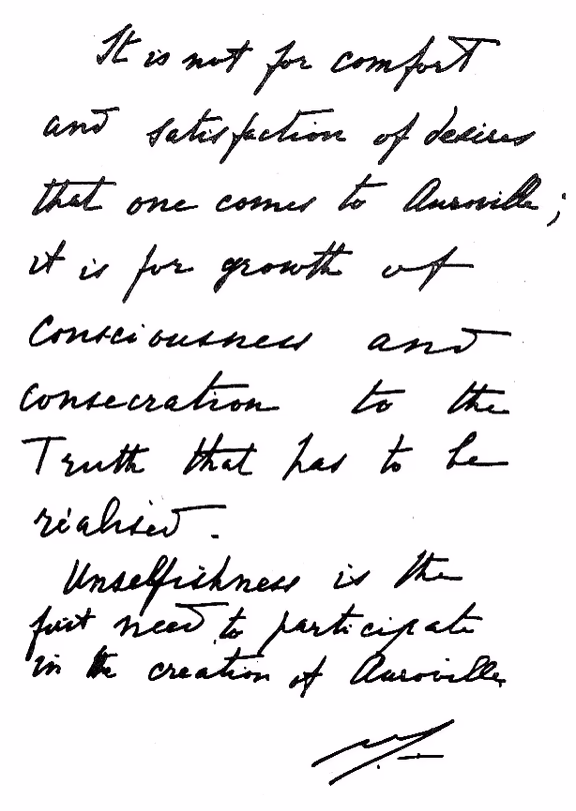 It is not for comfort
and satisfaction of desires
that one comes to Auroville;
it is for growth of
consciousness and
consecration to the
Truth that has to be
realised.
Unselfishness is the
first need to participate
in the creation of Auroville